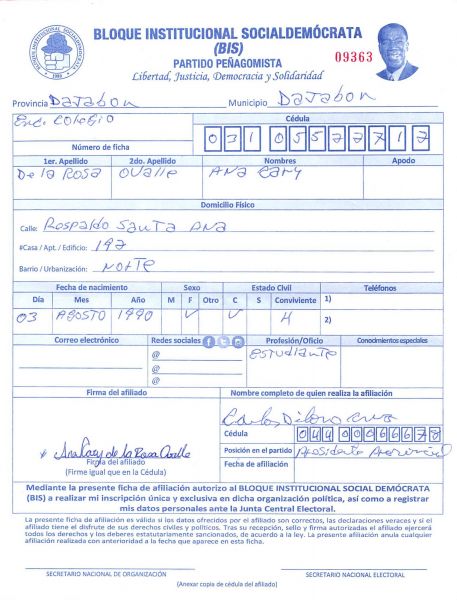 BLOQUE INSTITUCIONAL SOCIALDEMÓCRATA
(BIS)
PARTIDO PEÑAGOMISTA
Libertad, Justicia, Democracia y Solidaridad
09363
Provincia Dajabon Municipio Dajabon
Enc. Colegio Cédula
Número de ficha 031 0557771
1er. Apellido 2do. Apellido Nombres Apodo
De la Rosa Ovalle Ana Cary
Domicilio Físico
Calle: Respaldo Santa Ana
#Casa / Apt. / Edificio: 192
Barrio / Urbanización: Norte
Fecha de nacimiento Sexo Estado Civil Teléfonos
Día Mes Año M F Otro C S Conviviente 1)
03 Agosto 1990 2)
Correo electrónico Redes sociales Profesión/Oficio Conocimientos especiales
@ estudiante
@
@
Firma del afiliado Nombre completo de quien realiza la afiliación
Carlos
Cédula 044 000
Ana Cary de la Rosa Ovalle Posición en el partido Presidente
Firma del afiliado Fecha de afiliación
(Firme igual que en la Cédula)
Mediante la presente ficha de afiliación autorizo al BLOQUE INSTITUCIONAL SOCIAL DEMÓCRATA
(BIS) a realizar mi inscripción única y exclusiva en dicha organización política, así como a registrar
mis datos personales ante la Junta Central Electoral.
La presente ficha de afiliación es válida si los datos ofrecidos por el afiliado son correctos, las declaraciones veraces y si el
afiliado tiene el disfrute de sus derechos civiles y políticos. Tras su recepción, sello y firma autorizadas el afiliado ejercerá
todos los derechos y los deberes estatutariamente sancionados, de acuerdo a la ley. La presente afiliación anula cualquier
afiliación realizada con anterioridad a la fecha que aparece en esta ficha.
SECRETARIO NACIONAL DE ORGANIZACIÓN SECRETARIO NACIONAL ELECTORAL
(Anexar copia de cédula del afiliado)